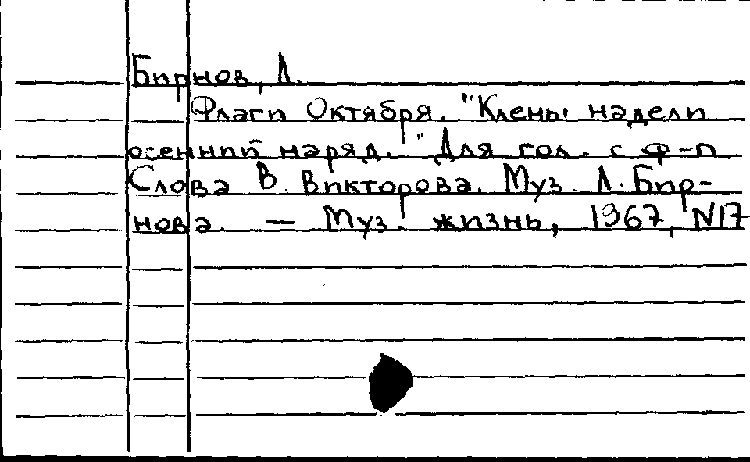 Бирнов, Л.
Флаги Октября. "Клены надели
осенний наряд." Для гол. с ф-п
Слова В. Викторова. Муз. Л. Бир-
нова. — Муз. жизнь, 1967, N17